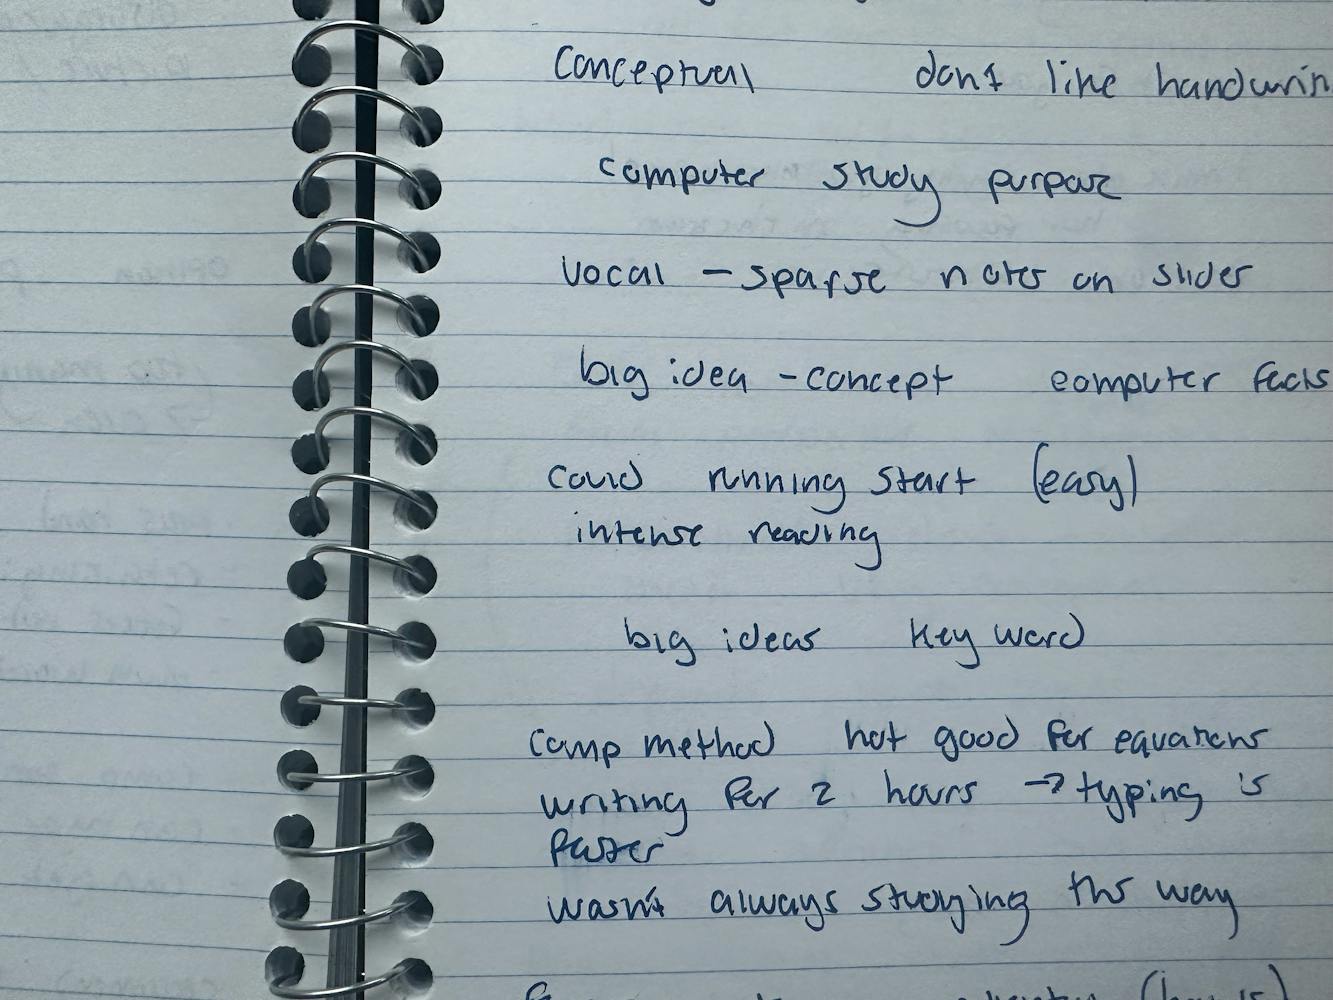 Conceptual don't like handwrin
computer study purpose
vocal - sparse notes on slides
big idea - concept computer facts
covid running start (easy)
intense reading
big ideas key word
comp method not good for equations
writing for 2 hours → typing is
faster
wasn't always studying this way